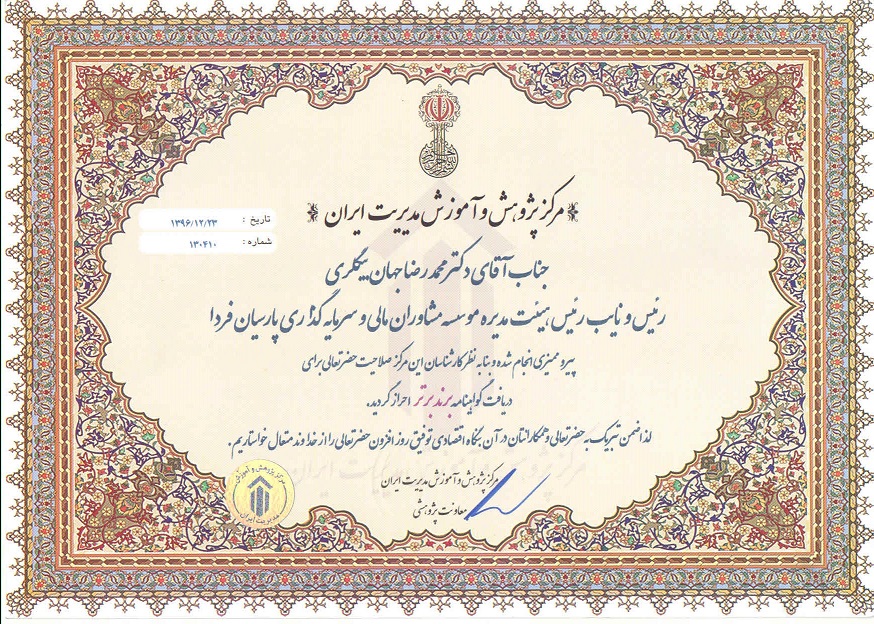 مرکز پژوهش و آموزش مدیریت ایران
تاریخ : ۱۳۹۶/۱۲/۲۳
شماره : ۱۳۰۴۱۰
جناب آقای دکتر محمدرضا جهان بیگلری
رئیس و نایب رئیس هیئت مدیره موسسه مشاوران مالی و سرمایه گذاری پارسیان فردا
پیرو ممیزی انجام شده و بنا به نظر کارشناسان این مرکز صلاحیت حضرتعالی برای
دریافت گواهینامه برند برتر احراز گردید.
لذا ضمن تبریک به حضرتعالی و همکارانتان در آن بنگاه اقتصادی توفیق روز افزون حضرتعالی را از خداوند متعال خواستاریم.
مرکز پژوهش و آموزش مدیریت ایران
معاونت پژوهشی
مرکز پژوهش و آموزش
مدیریت ایران